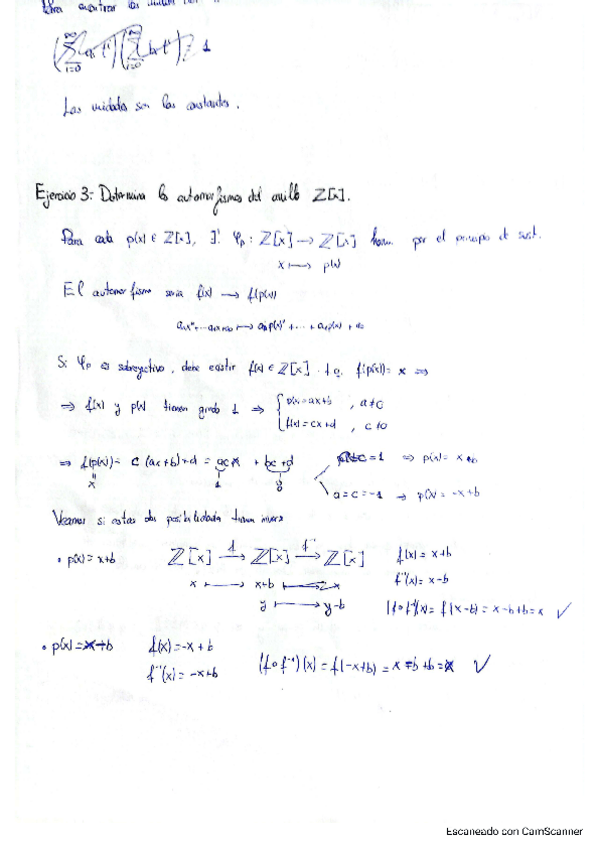 Para encontrar las unidades
(∑_{i=0}^{∞} a t^i)(∑_{i=0}^{∞} b t^i) = 1
Las unidades son las constantes.
Ejercicio 3: Determina los automorfismos del anillo ℤ[x].
Para cada p(x) ∈ ℤ[x], ∃! φp : ℤ[x] → ℤ[x] hom. por el principio de sust.
x ⟼ p(x)
El automorfismo seria f(x) → f(p(x))
Si φp es sobreyectivo, debe existir f(x) ∈ ℤ[x] t.q. f(p(x)) = x ⇒
⇒ f(x) y p(x) tienen grado 1 ⇒ { p(x) = ax+b , a≠0
f(x) = cx+d , c≠0
⇒ f(p(x)) = c(ax+b)+d = acx + bc+d
a=c=1 ⇒ p(x) = x+b
x 1 0
a=c=-1 ⇒ p(x) = -x+b
Veamos si estas dos posibilidades tienen inversa
• p(x) = x+b ℤ[x] →f ℤ[x] →f⁻¹ ℤ[x] f(x) = x+b
x ⟼ x+b ⟼ x f⁻¹(x) = x-b
y ⟼ y-b (f∘f⁻¹)(x) = f(x-b) = x-b+b = x ✓
• p(x) = -x+b f(x) = -x+b
f⁻¹(x) = -x+b (f∘f⁻¹)(x) = f(-x+b) = x-b+b = x ✓
Escaneado con CamScanner